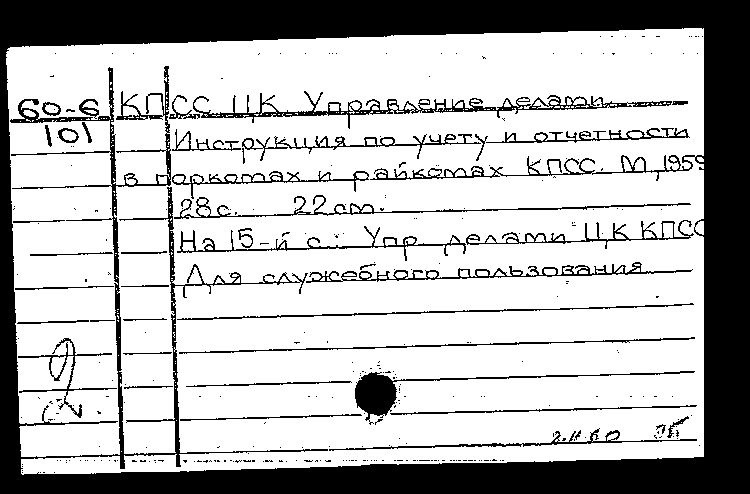 60-6 КПСС ЦК. Управление делами.
101 Инструкция по учету и отчетности
в горкомах и райкомах КПСС. М., 1959
28с. 22см.
На 15-й с.: Упр. делами ЦК КПСС
Для служебного пользования
2.II 60